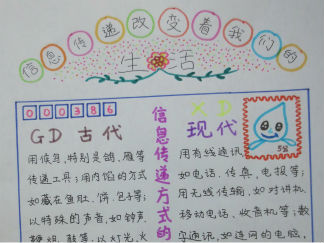 信息传递改变着我们的
生活
000386
GD 古代
用候息,特别是鸽、雁等
传递工具;用内馅的方式
如藏在鱼肚、饼、包等;
以特殊的声音,如钟声
鞭炮、鼓等,以灯光,火
信息传递方式的
XD
现代
5分
用有线通讯
如电话、传真、电报等;
用无线传输,如对讲机、
移动电话、收音机等;数
字通讯,如连网的电脑,